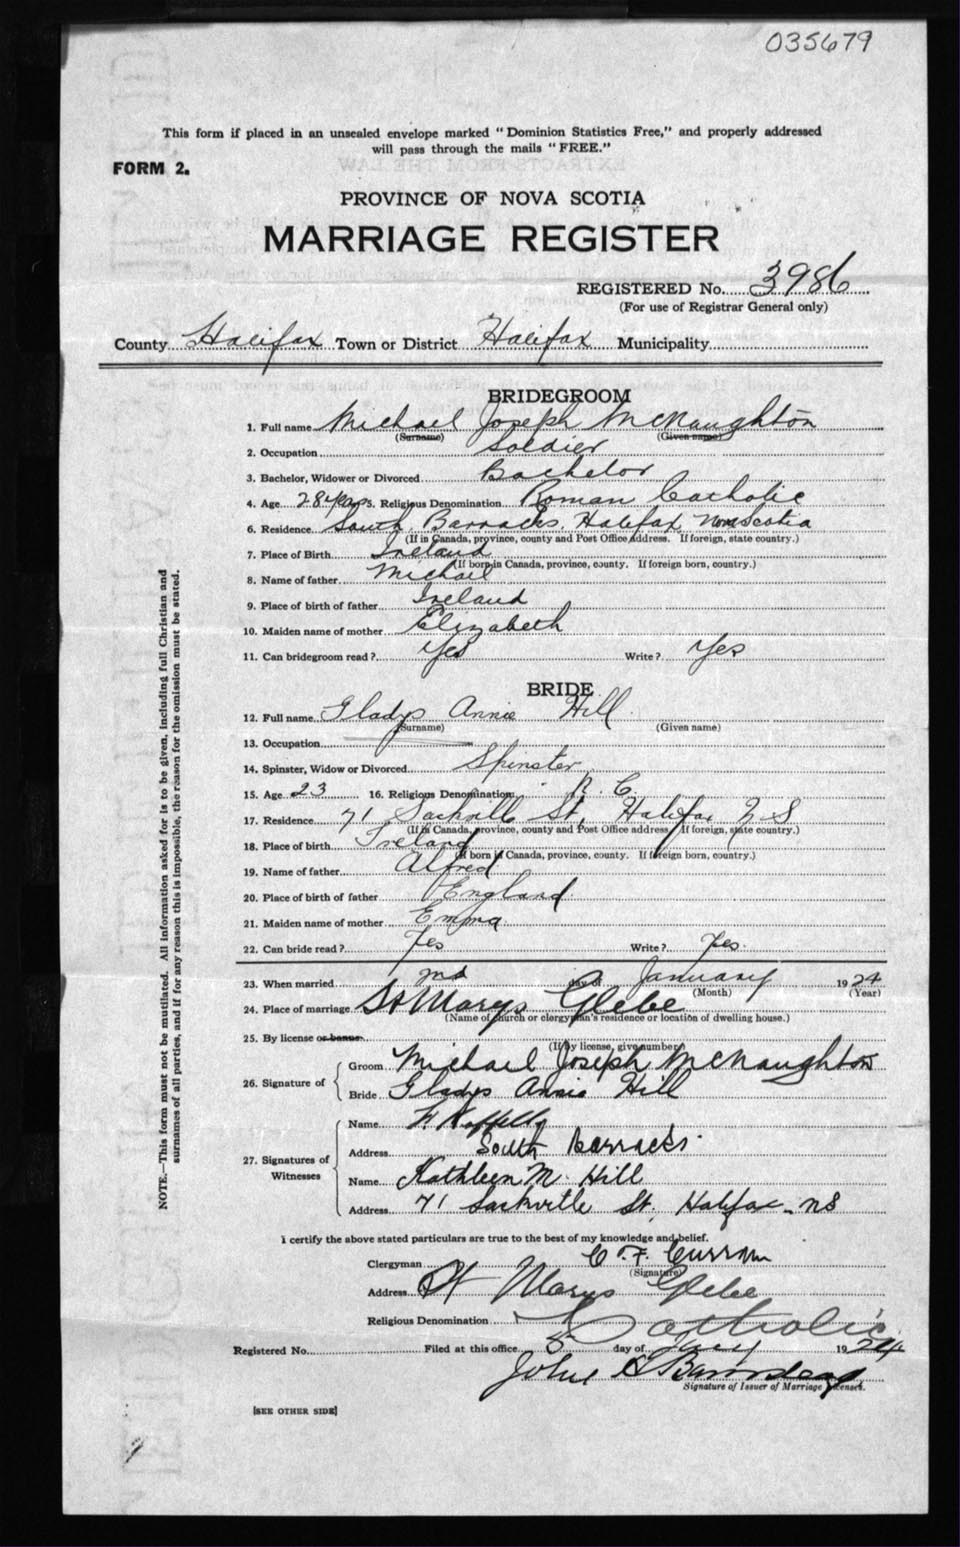 035679
This form if placed in an unsealed envelope marked "Dominion Statistics Free," and properly addressed
will pass through the mails "FREE."
FORM 2.
PROVINCE OF NOVA SCOTIA
MARRIAGE REGISTER
REGISTERED No. 3986
(For use of Registrar General only)
County Halifax Town or District Halifax Municipality
BRIDEGROOM
1. Full name Michael Joseph McNaughton
(Surname) (Given name)
2. Occupation Soldier
3. Bachelor, Widower or Divorced Bachelor
4. Age 28 years 5. Religious Denomination Roman Catholic
6. Residence South Barracks, Halifax Nova Scotia
(If in Canada, province, county and Post Office Address. If foreign, state country.)
7. Place of Birth Ireland
(If born in Canada, province, county. If foreign born, country.)
8. Name of father Michael
9. Place of birth of father Ireland
10. Maiden name of mother Elizabeth
11. Can bridegroom read? Yes Write? Yes
BRIDE
12. Full name Gladys Annie Hill
(Surname) (Given name)
13. Occupation
14. Spinster, Widow or Divorced Spinster
15. Age 23 16. Religious Denomination R. C.
17. Residence 71 Sackville St, Halifax N S
(If in Canada, province, county and Post Office address. If foreign, state country.)
18. Place of birth Ireland
(If born in Canada, province, county. If foreign born, country.)
19. Name of father Alfred
20. Place of birth of father England
21. Maiden name of mother Emma
22. Can bride read? Yes Write? Yes.
23. When married day of January 1924
(Month) (Year)
24. Place of marriage St Marys Glebe
(Name of church or clergyman's residence or location of dwelling house.)
25. By license or banns
(If by license, give number)
26. Signature of Groom Michael Joseph McNaughton
Bride Gladys Annie Hill
27. Signatures of Witnesses
Name F.
Address South Barracks.
Name Kathleen M. Hill
Address 71 Sackville St, Halifax - NS
I certify the above stated particulars are true to the best of my knowledge and belief.
Clergyman C. F. Curran
(Signature)
Address St Marys Glebe
Religious Denomination Catholic
Registered No. Filed at this office 5 day of 1924
John
Signature of Issuer of Marriage Licenses.
[SEE OTHER SIDE]
NOTE.—This form must not be mutilated. All information asked for is to be given, including full Christian and
surnames of all parties, and if for any reason this is impossible, the reason for the omission must be stated.